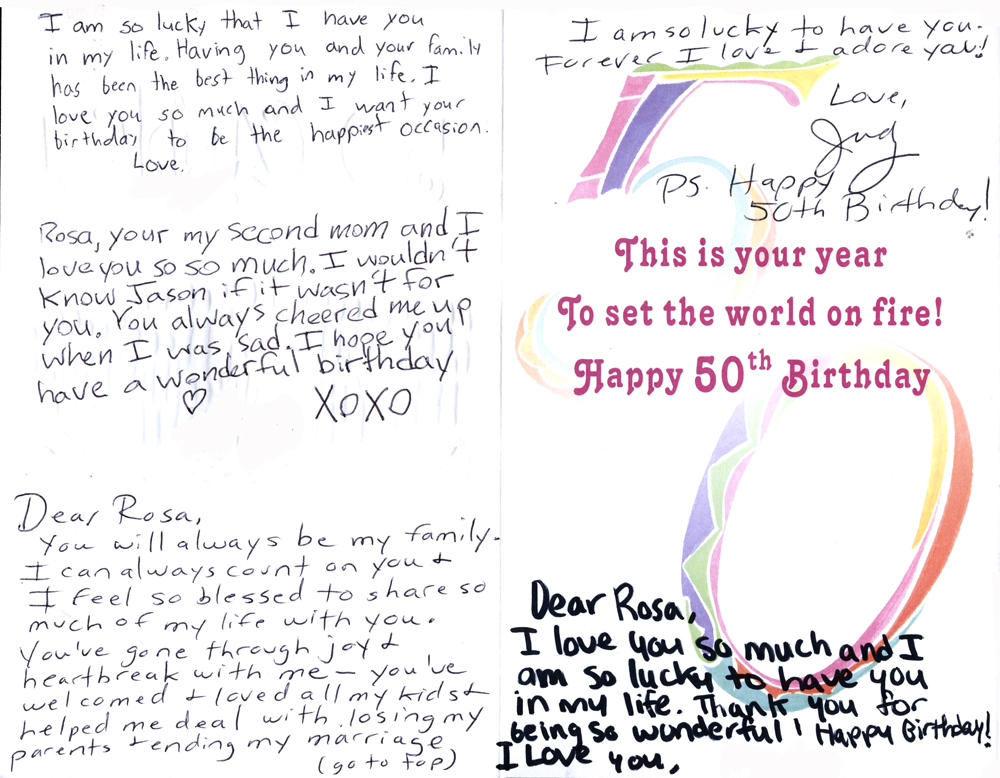 I am so lucky that I have you
in my life. Having you and your family
has been the best thing in my life. I
love you so much and I want your
birthday to be the happiest occasion.
Love.
Rosa, your my second mom and I
love you so so much. I wouldn't
know Jason if it wasn't for
you. You always cheered me up
when I was sad. I hope you
have a wonderful birthday
♡ XOXO
Dear Rosa,
You will always be my family.
I can always count on you &
I feel so blessed to share so
much of my life with you.
You've gone through joy &
heartbreak with me – you've
welcomed & loved all my kids &
helped me deal with losing my
parents & ending my marriage
(go to top)
I am so lucky to have you.
Forever I love & adore you!
Love,
Judy
PS. Happy
50th Birthday!
This is your year
To set the world on fire!
Happy 50th Birthday
Dear Rosa,
I love you so much and I
am so lucky to have you
in my life. Thank you for
being so wonderful! Happy Birthday!
I Love you,